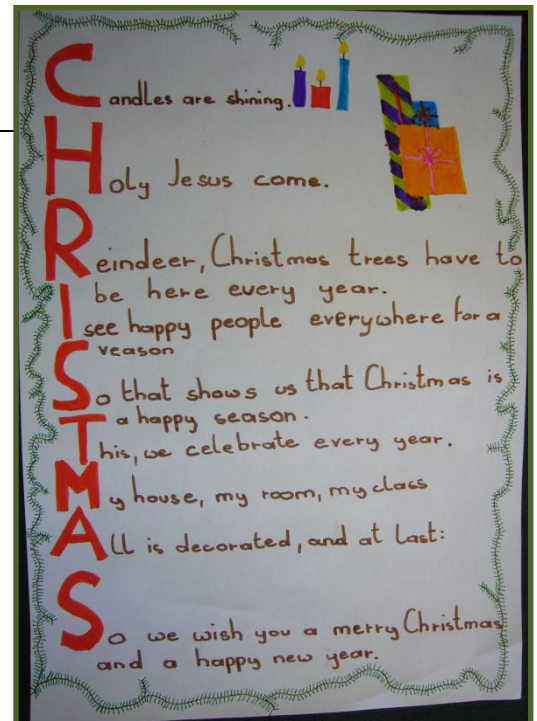 Candles are shining.
Holy Jesus come.
Reindeer, Christmas trees have to
be here every year.
I see happy people everywhere for a
reason
So that shows us that Christmas is
a happy season.
This, we celebrate every year.
My house, my room, my class
All is decorated, and at last:
So we wish you a merry Christmas
and a happy new year.